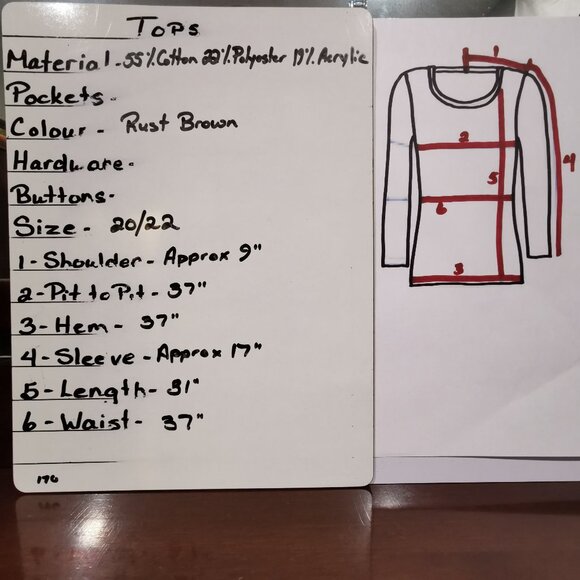 Tops
Material - 55% Cotton 22% Polyester 19% Acrylic
Pockets -
Colour - Rust Brown
Hardware -
Buttons -
Size - 20/22
1 - Shoulder - Approx 9"
2 - Pit to Pit - 37"
3 - Hem - 37"
4 - Sleeve - Approx 17"
5 - Length - 31"
6 - Waist - 37"
176
1
2
4
5
6
3